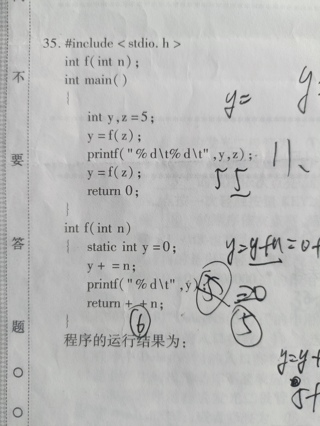 35. #include < stdio. h >
int f( int n) ;
int main( )
{
int y,z = 5;
y = f( z) ;
printf( " % d\t% d\t" ,y,z) ;
y = f( z) ;
return 0;
}
int f( int n)
{ static int y = 0;
y + = n;
printf( " % d\t" ,y) ;
return + + n;
}
程序的运行结果为:
不
要
答
题
y=
y=
5 5
11、
y=y+n=0+
5
=20
5
6
y=y+
5+